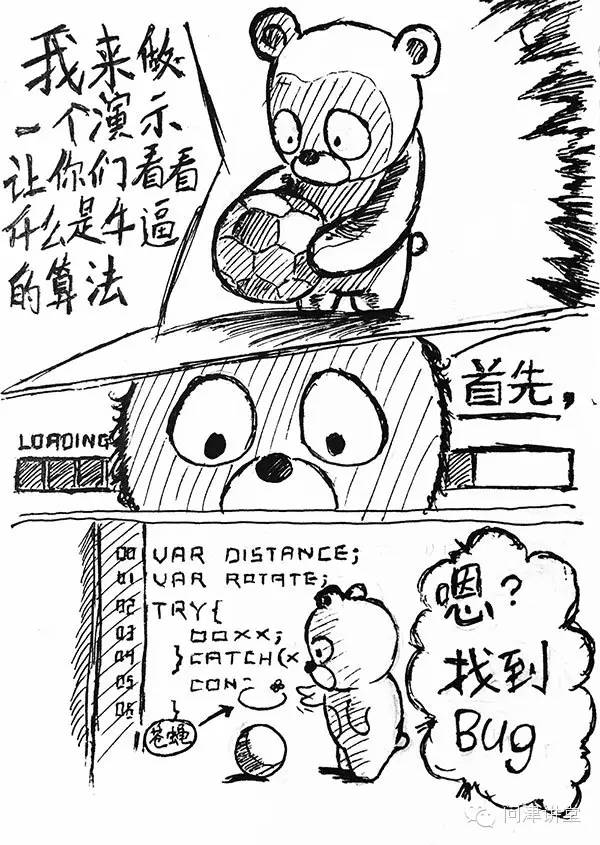 我来做
一个演示
让你们看看
什么是牛逼
的算法
首先，
LOADING
00 VAR DISTANCE;
01 VAR ROTATE;
02 TRY{
03 OOXX;
04 }CATCH(X
05 CON
06 }
苍蝇
嗯？
找到
Bug
问津讲堂